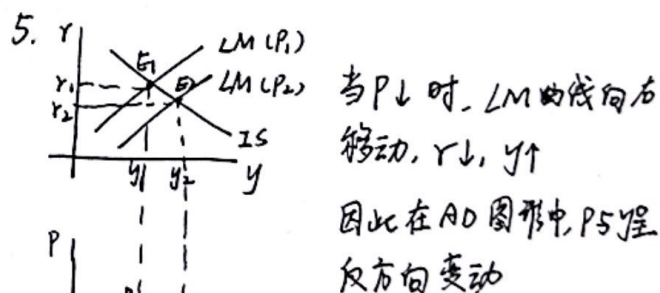 5.
r
LM(P₁)
E₁
LM(P₂)
r₁
E₂
r₂
IS
y₁ y₂ y
P
当P↓时，LM曲线向右
移动，r↓，y↑
因此在AD图形中，P与y呈
反方向变动